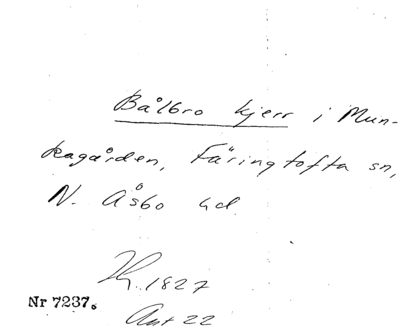 Bålbro kjerr i Mun-
kagården, Färingtofta sn,
N. Åsbo hd.
1827
Nr 7237.
Akt 22